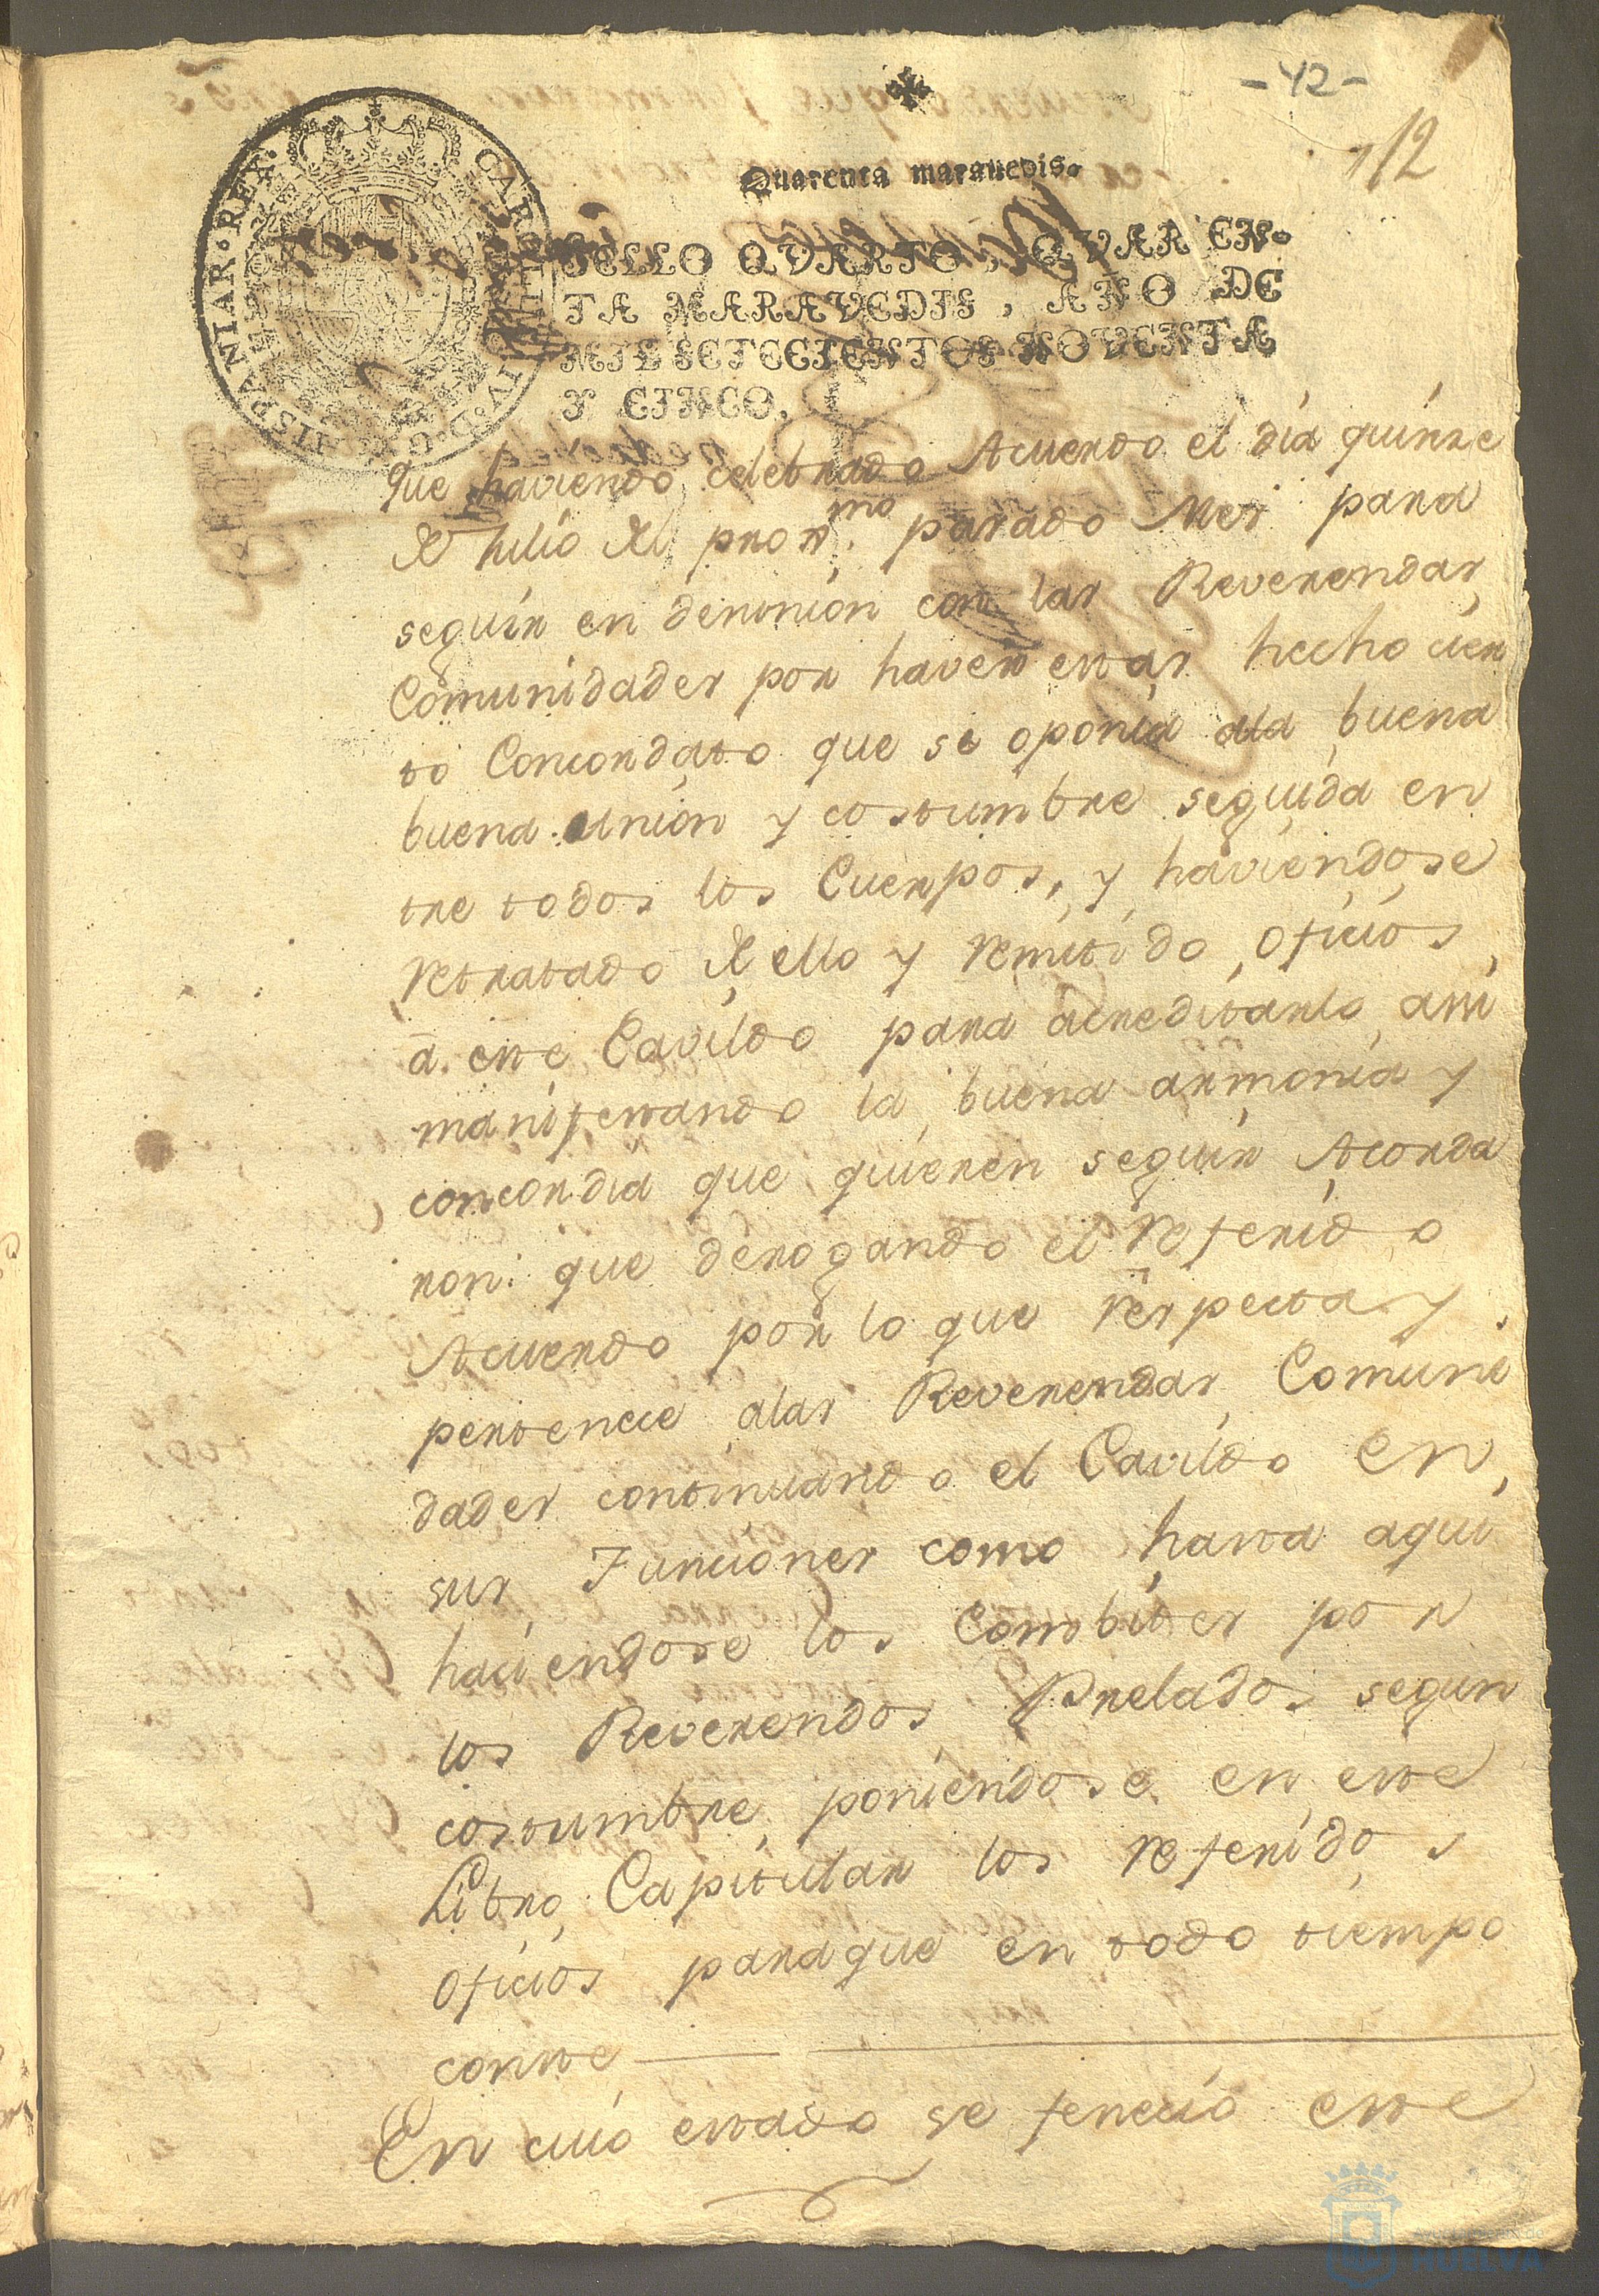 - 42 -
112
Quarenta marauedis.
SELLO QVARTO, QVAREN-
TA MARAVEDIS, AÑO DE
MIL SETECIENTOS NOVENTA
Y CINCO.
CAROLVS IV D.G. HISPANIAR. REX.
Que haviendo celebrado Acuerdo el día quinze
de Julio del proxmo. pasado Mes para
seguir en desunion con las Reverendas
Comunidades por haver estas hecho cier
to Concordato que se oponia ala buena
buena union y costumbre seguida en
tre todos los Cuerpos, y haviendose
retratado de ello y remitido oficios
a este Cavildo para acreditarlo assi
manifestando la buena armonia y
concordia que quieren seguir Acorda
ron: que derogando el referido
Acuerdo por lo que respecta y
pertenece alas Reverendas Comuni
dades continuando el Cavildo en
sus Funciones como hasta aqui
haciendose los Combites por
los Reverendos Prelados segun
costumbre, poniendose en este
Libro Capitular los referidos
oficios para que en todo tiempo
conste
En cuio estado se fenecio este
Ayuntamiento de
HUELVA